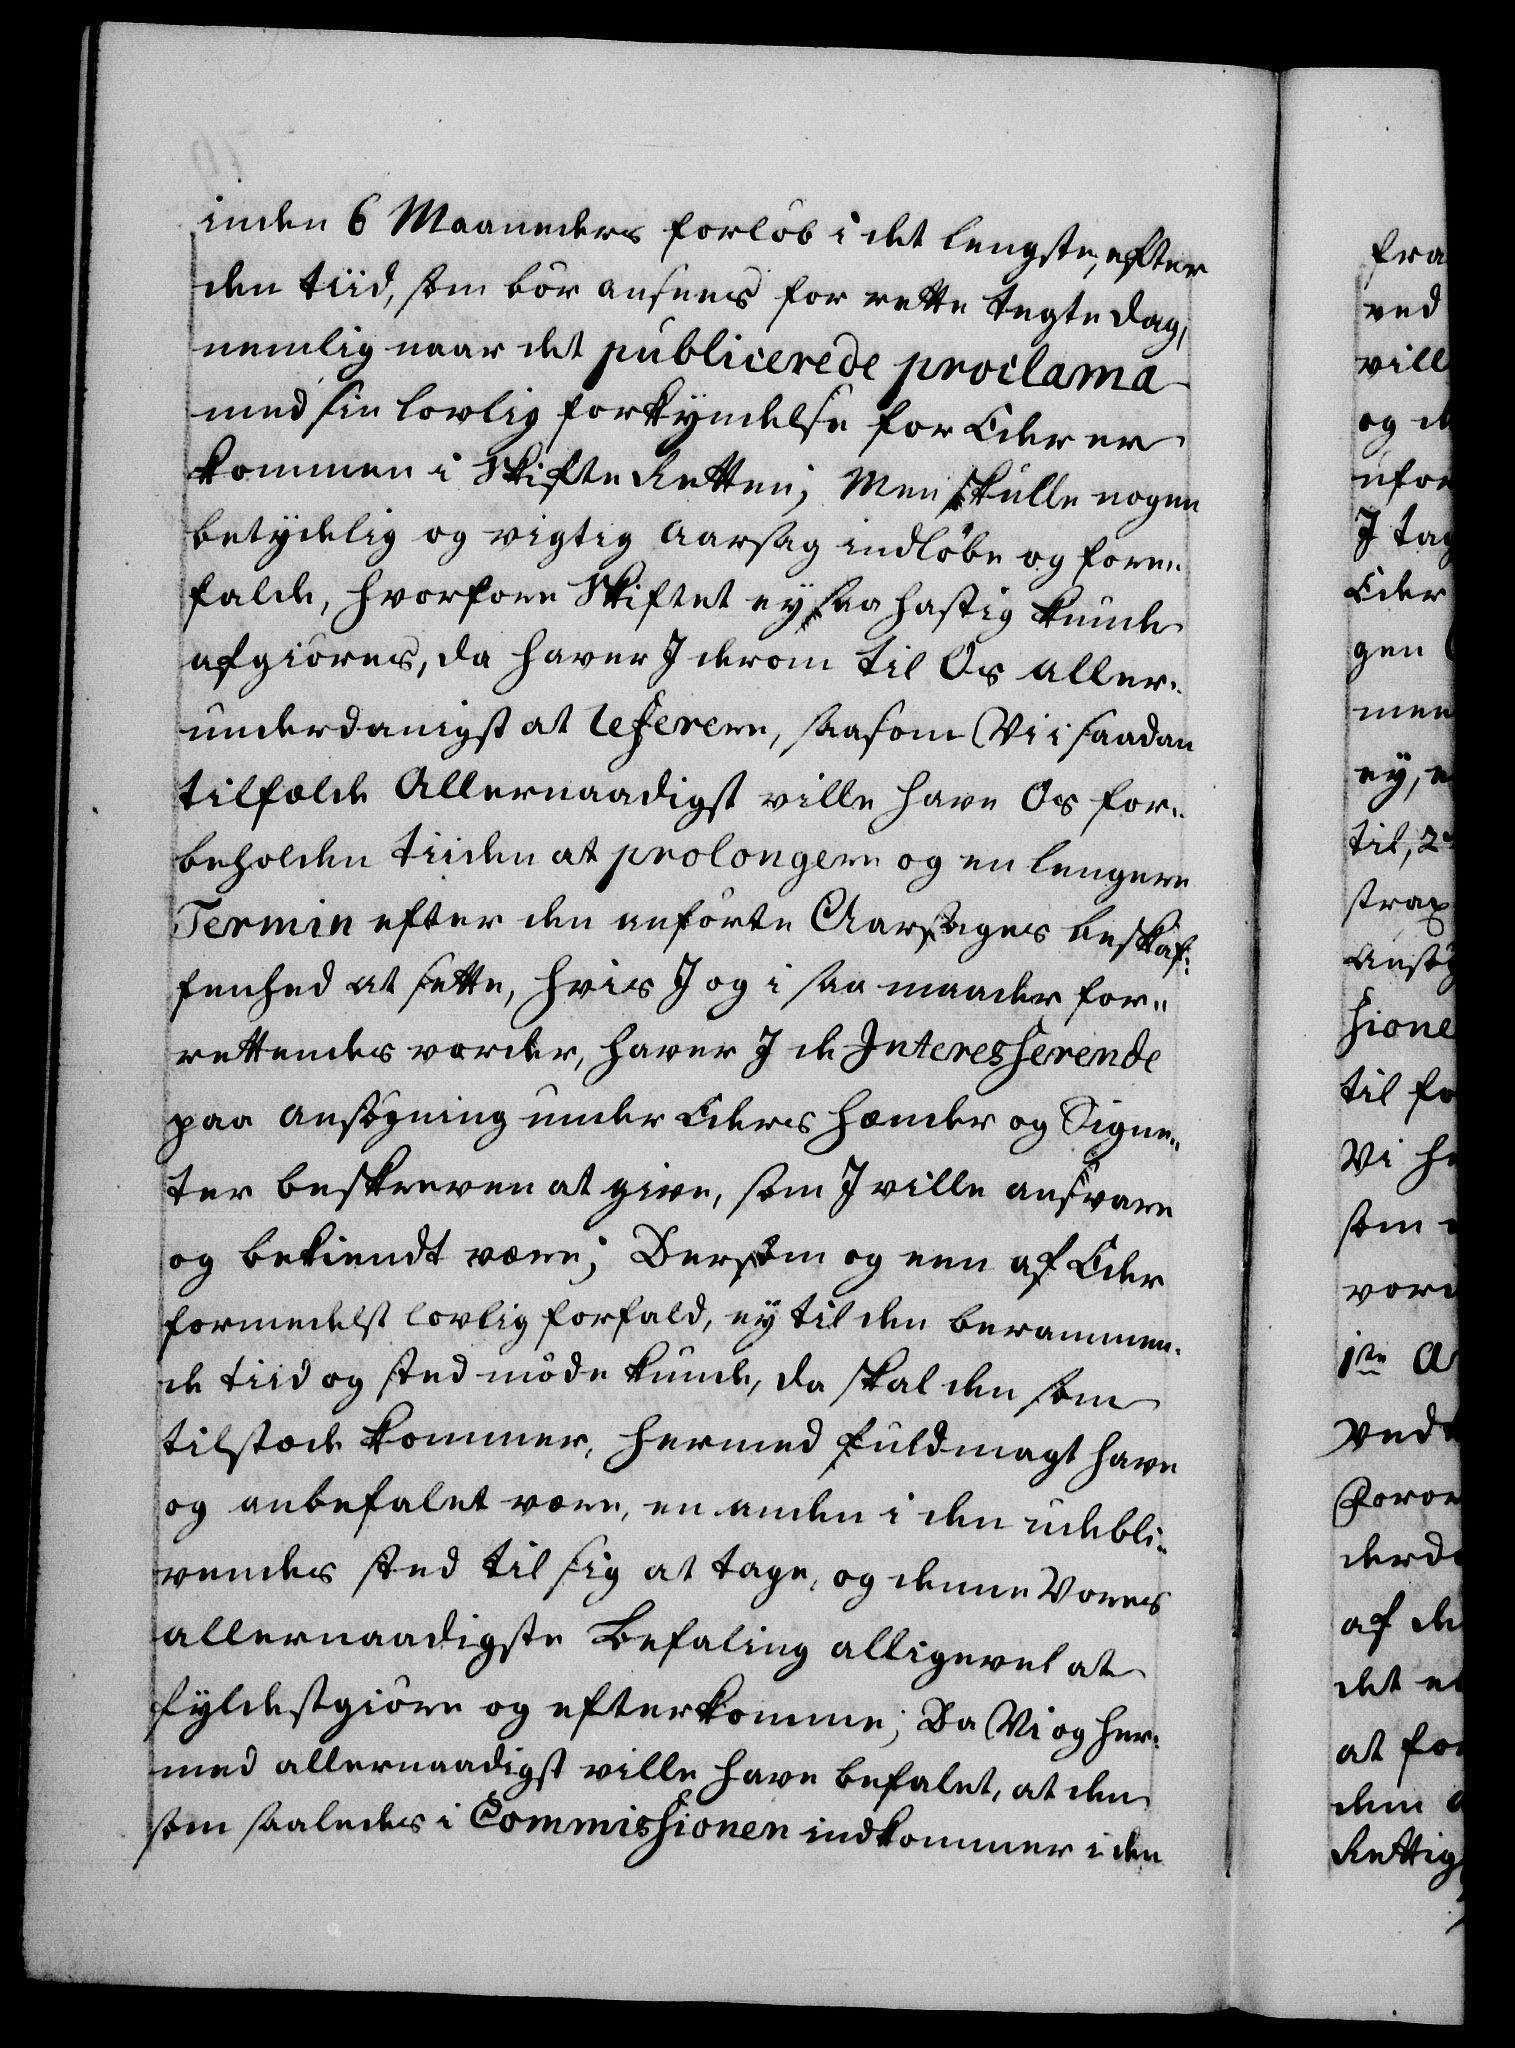 inden 6 Maaneders forløb i det lengste, efter
den tiid, som bør ansees for rette tegtedag,
nemlig naar det publicerede proclama
med sin lovlig forkyndelse for Eder er
kommen i Skifte Retten; Men skulle nogen
betydelig og vigtig Aarsag indløbe og fore-
falde, hvorfore Skiftet ey saa hastig kunde
afgiøres, da haver J derom til Os aller-
underdanigst at referere, saasom Vi i saadan
tilfælde Allernaadigst ville have Os for-
beholden tiiden at prolongere og en lengere
Termin efter den anførte Aarsages beskaf-
fenhed at sette, hvis J og i saa maader for-
rettendes vorder, haver J de Interesserende
paa ansøgning under Eders Hænder og Signe-
ter beskreven at give, som J ville ansvare
og bekiendt være; Dersom og een af Eder
formedelst lovlig forfald, ey til den berammen-
de tiid og sted møde kunde, da skal den som
tilstæde kommer, hermed fuldmagt have
og anbefalet være, en anden i den udebli-
vendes sted til sig at tage, og denne Vores
allernaadigste Befaling alligevel at
fyldestgiøre og efterkomme; Da Vi og her-
med allernaadigst ville have befalet, at den
som saaledes i Commissionen indkommer i den
fra
ved
vill
og d
ufor
J tag
Eder
gen
men
ey, e
til, 2
strax
Ansøg
sione
til fo
Vi h
som
vor
1te A
ved
Foror
derd
af de
det e
at fo
dem
Rettig